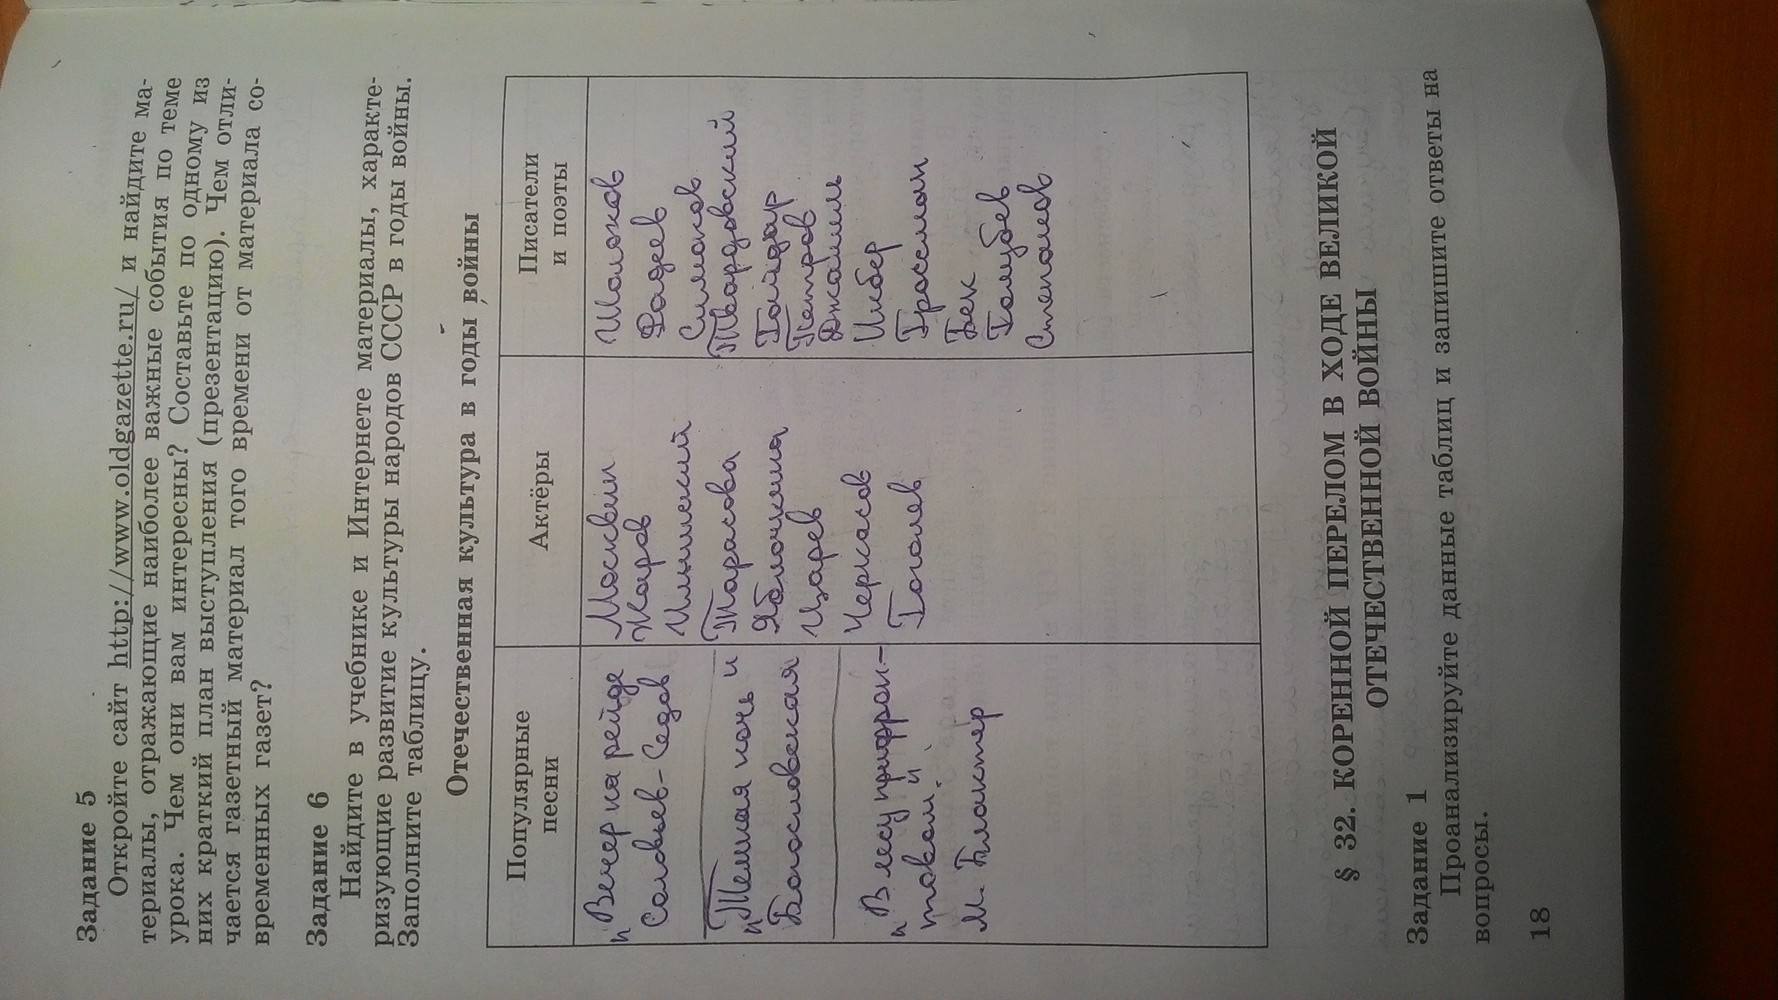 Задание 5
Откройте сайт http://www.oldgazette.ru/ и найдите ма-
териалы, отражающие наиболее важные события по теме
урока. Чем они вам интересны? Составьте по одному из
них краткий план выступления (презентацию). Чем отли-
чается газетный материал того времени от материала со-
временных газет?
Задание 6
Найдите в учебнике и Интернете материалы, характе-
ризующие развитие культуры народов СССР в годы войны.
Заполните таблицу.
Отечественная культура в годы войны
Популярные
песни
"Вечер на рейде
Соловьев-Седов
"Темная ночь"
Богословская
"В лесу прифрон-
товом"
М. Блантер
Актёры
Москвин
Жаров
Ильинский
Тарасова
Яблочкина
Царев
Черкасов
Гоголев
Писатели
и поэты
Шолохов
Фадеев
Симонов
Твардовский
Гайдар
Петров
Джалиль
Инбер
Гроссман
Бек
Голубев
Степанов
§ 32. КОРЕННОЙ ПЕРЕЛОМ В ХОДЕ ВЕЛИКОЙ
ОТЕЧЕСТВЕННОЙ ВОЙНЫ
Задание 1
Проанализируйте данные таблиц и запишите ответы на
вопросы.
18